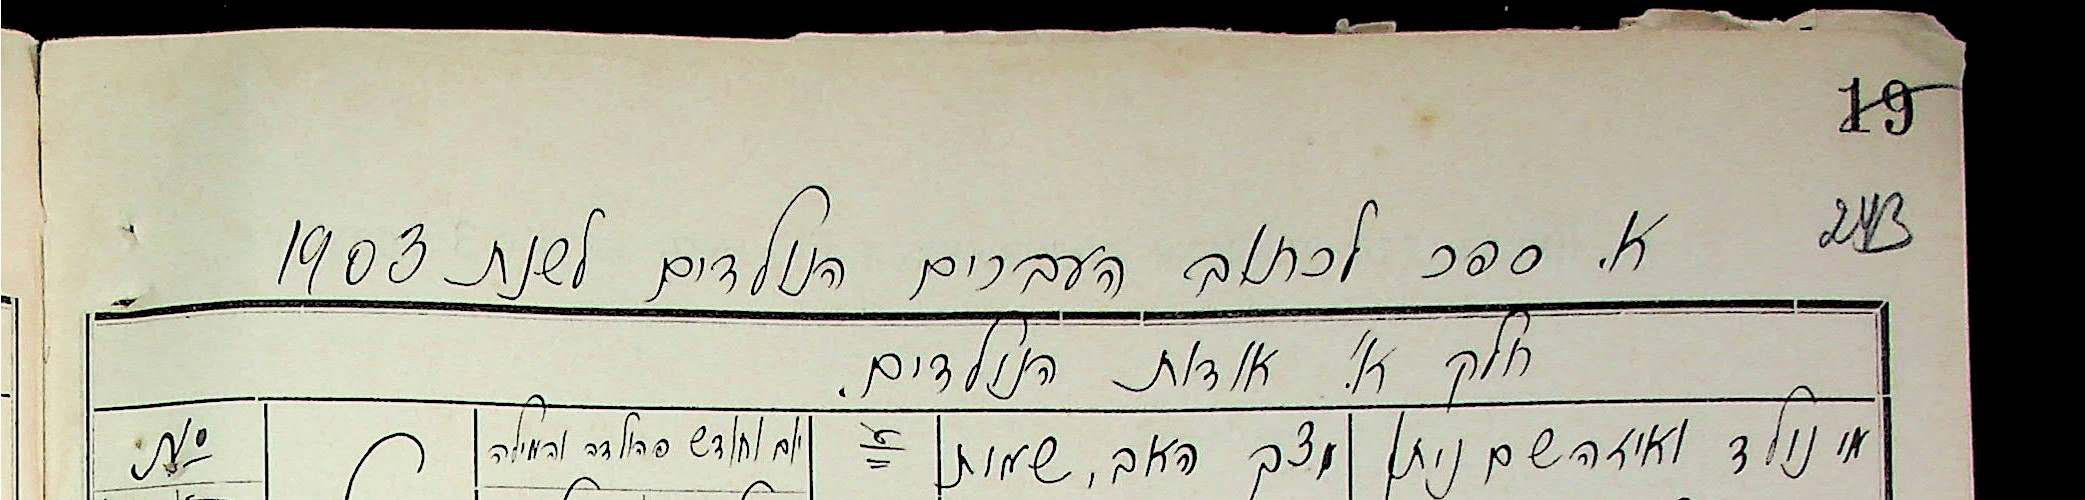 19
243
א. ספר לכתוב העברים הנולדים לשנת 1903
חלק א'. אודות הנולדים.
מי נולד ואיזה שם ניתן
מצב האב, שמות
יום וחודש הולדה והמילה
№